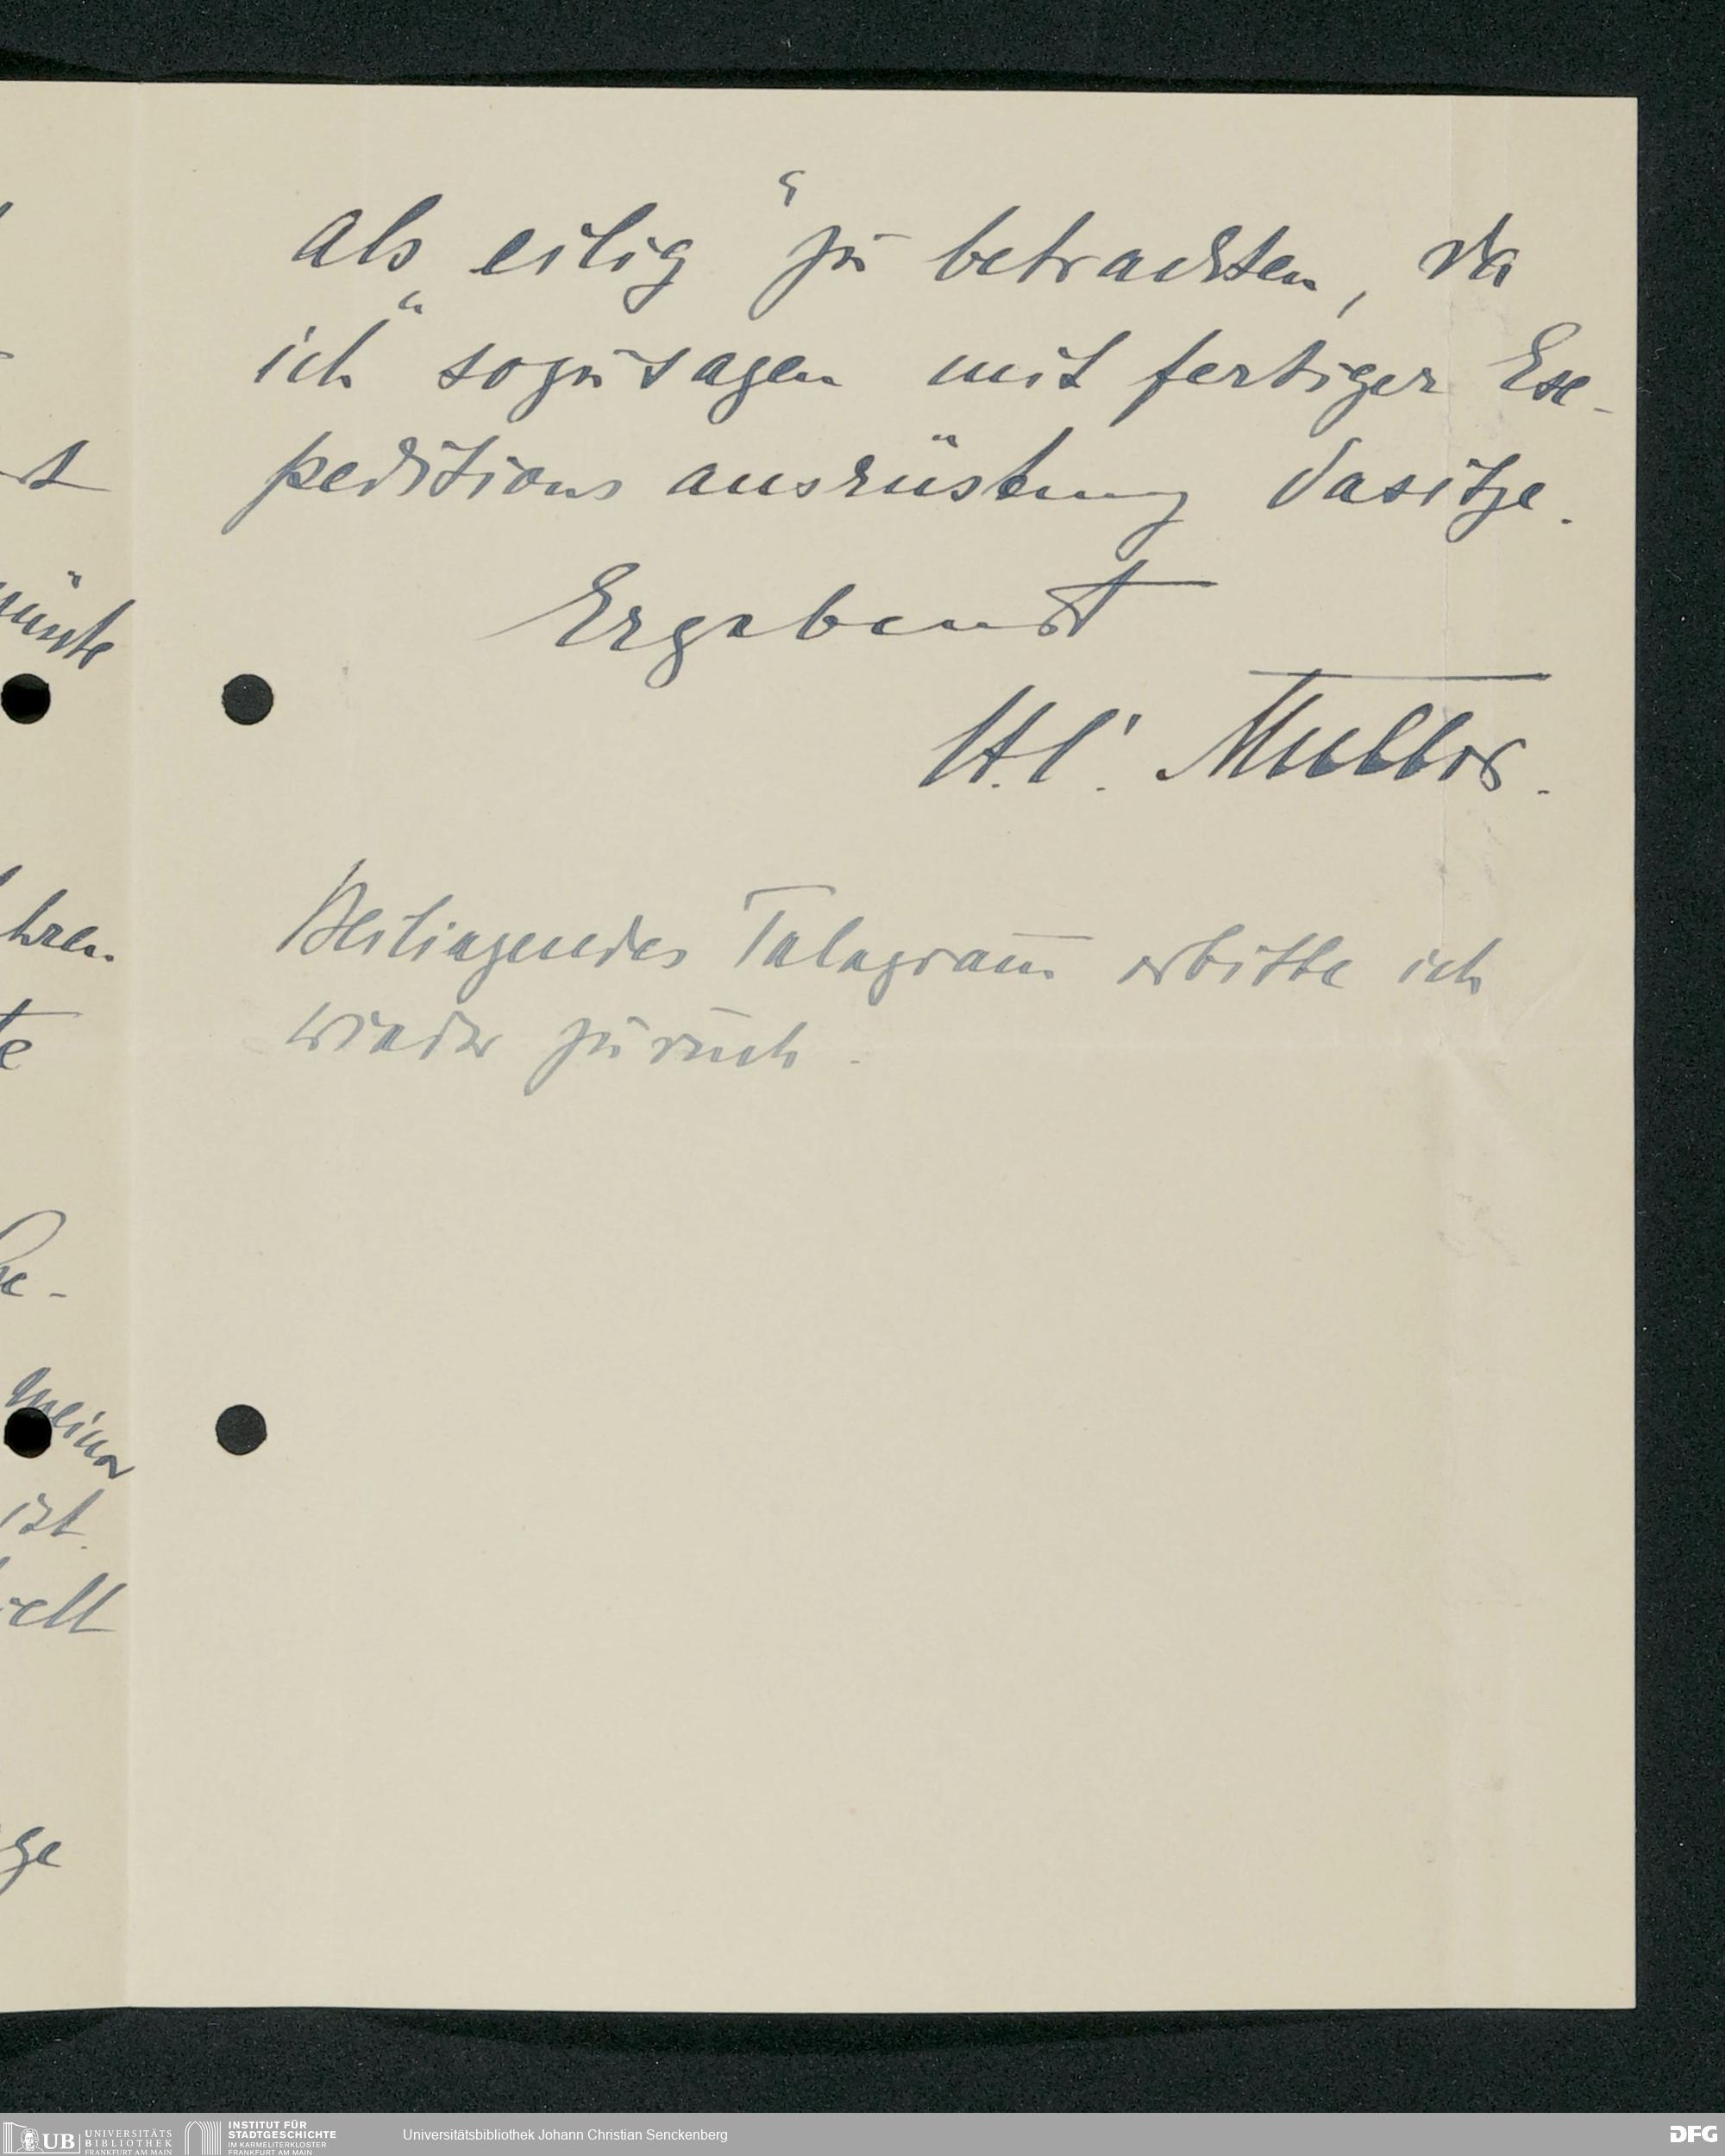 als „eilig“ zu betrachten, da
ich sozusagen mit fertiger Ex-
peditionsausrüstung dasitze.
Ergebenst
H. C. Müller.
Beiliegendes Telegram̅ erbitte ich
wieder zurück.
hren
te
meiner
ist.
UB
UNIVERSITÄTS
BIBLIOTHEK
FRANKFURT AM MAIN
INSTITUT FÜR
STADTGESCHICHTE
IM KARMELITERKLOSTER
FRANKFURT AM MAIN
Universitätsbibliothek Johann Christian Senckenberg
DFG